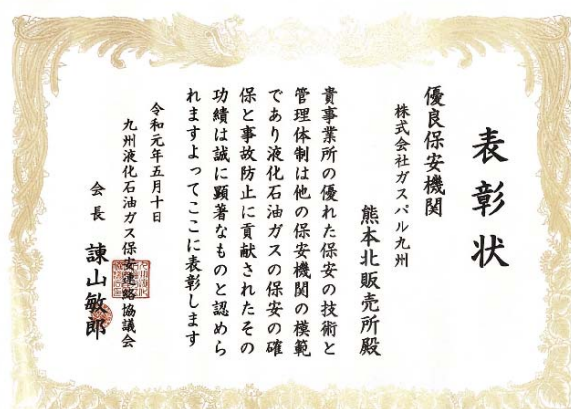 表彰状
優良保安機関
株式会社ガスパル九州
熊本北販売所殿
貴事業所の優れた保安の技術と
管理体制は他の保安機関の模範
であり液化石油ガスの保安の確
保と事故防止に貢献されたその
功績は誠に顕著なものと認めら
れますよってここに表彰します
令和元年五月十日
九州液化石油ガス保安連絡協議会
会長 諌山敏郎